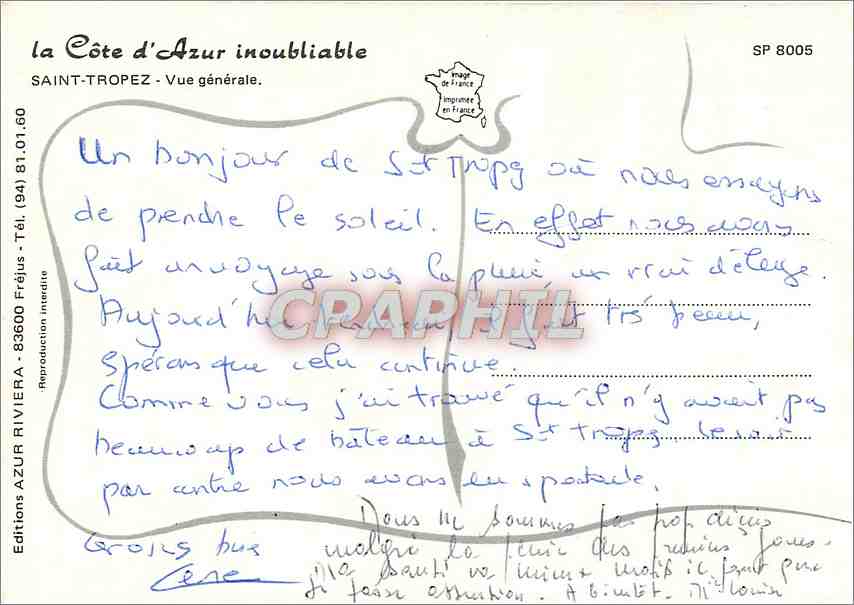 la Côte d'Azur inoubliable
SP 8005
SAINT-TROPEZ - Vue générale.
image
de France
imprimée
en France
Editions AZUR RIVIERA - 83600 Fréjus - Tél. (94) 81.01.60
Reproduction interdite
Un bonjour de St Tropez où nous essayons
de prendre le soleil. En effet nous avons
fait un voyage sous la pluie, un vrai déluge.
Aujourd'hui il fait très beau,
espérons que cela continue.
Comme vous j'ai trouvé qu'il n'y avait pas
beaucoup de bateau à St Tropez. Le soir
par contre nous avons eu spectacle.
Grosses bises
CPARPHIL
Nous ne sommes pas trop déçus
malgré la pluie des premiers jours.
Ma santé va mieux mais il faut que
je fasse attention. A bientôt. Louise